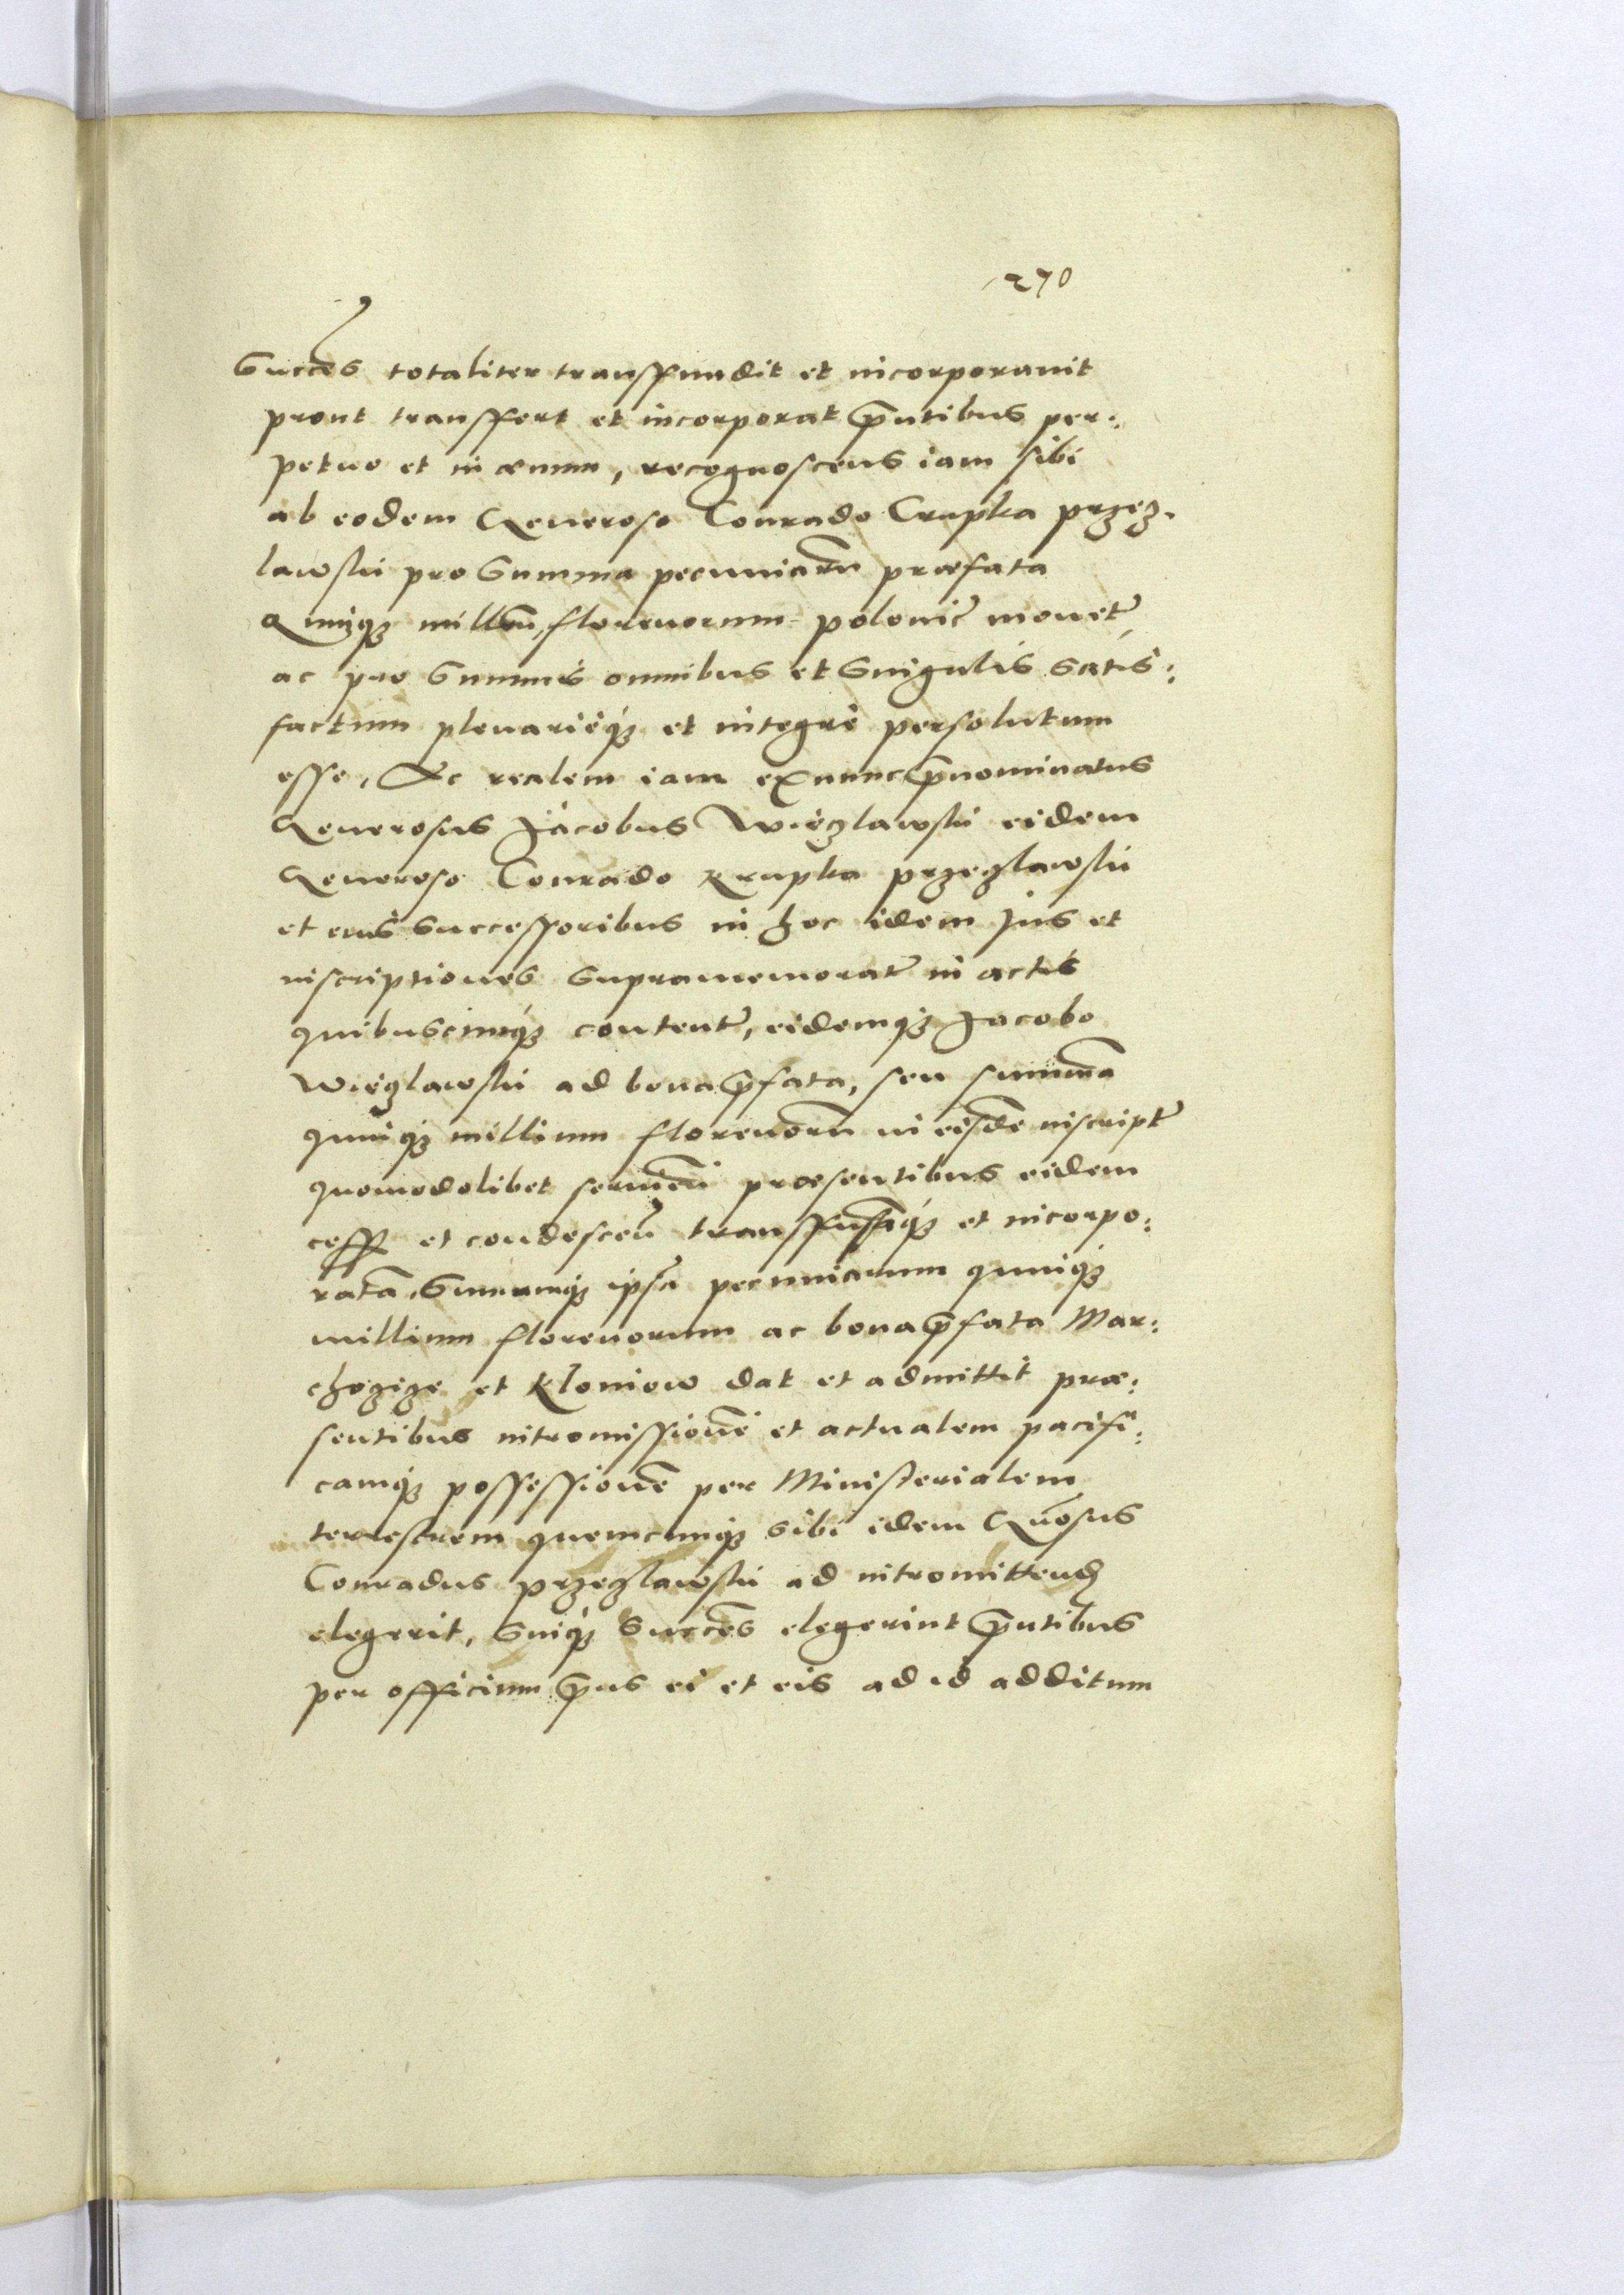 270
Succes totaliter transffundit et incorporauit
prout transffert et incorporat pntibus per:
petuo et in æuum, recognoscens iam sibi
ab eodem Generoso Conrado Crupka przez.
lawski pro Summa pecuniaru præfata
Quinq millm, florenorum polonic monet
ac pro Summis omnibus et Singulis Satis:
factum plenarièq et integrè persolutum
esse, Ac realem iam exnunc pnominatus
Generosus Jacobus Więzlawski eidem
Generoso Conrado Krupka przezlawski
et eius Successoribus in hoc idem Jus et
inscriptiones Supramemorat in actis
quibuscunq content, eidemq Jacobo
Więzlawski ad bona pfata, seu summa
quinq millium florenoru in eisde inscript
quomodolibet seruien præsentibus eidem
cess et condescen transffusaq et incorpo:
rata, Summamq ipsa pecuniarum quinq
millium florenorum ac bona pfata Mar:
chozize et Kloniow dat et admittit præ:
sentibus intromissione et actualem pacifi:
camq possessione per Ministerialem
terrestrem quemcunq sibi idem Gnosus
Conradus przezlawski ad intromittend
elegerit, Suiq Succes elegerint pntibus
per officium pns ei et eis ad id additum